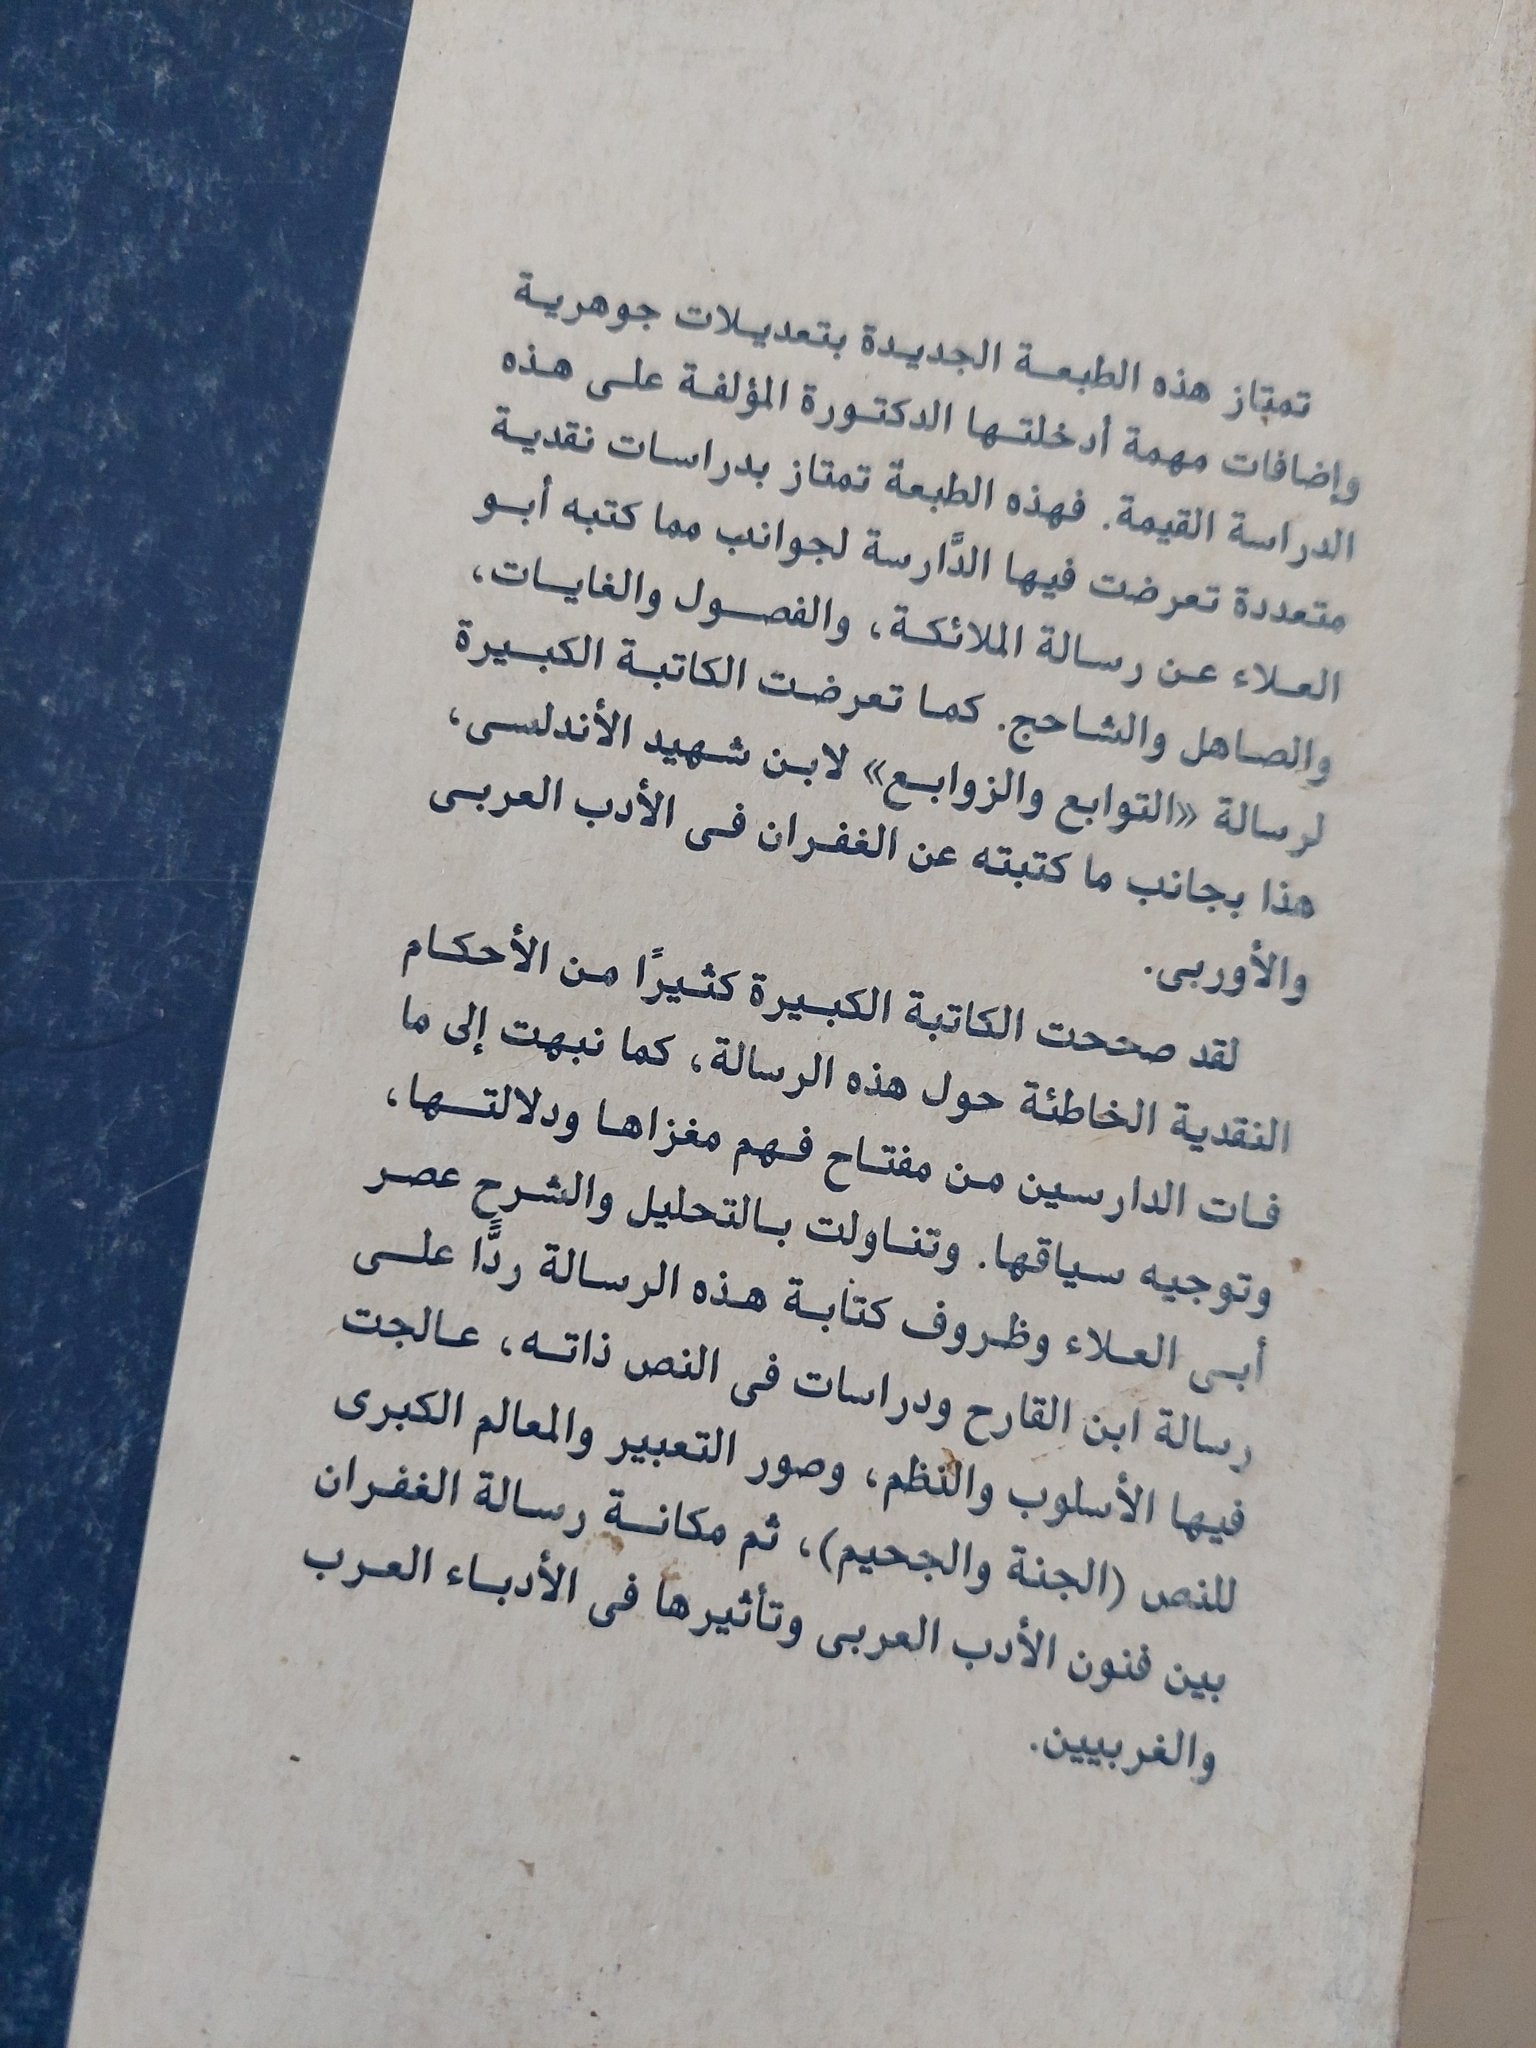 تمتاز هذه الطبعة الجديدة بتعديلات جوهرية
وإضافات مهمة أدخلتها الدكتورة المؤلفة على هذه
الدراسة القيمة. فهذه الطبعة تمتاز بدراسات نقدية
متعددة تعرضت فيها الدَّارسة لجوانب مما كتبه أبو
العلاء عن رسالة الملائكة، والفصول والغايات،
والصاهل والشاحج. كما تعرضت الكاتبة الكبيرة
لرسالة «التوابع والزوابع» لابن شهيد الأندلسى،
هذا بجانب ما كتبته عن الغفران فى الأدب العربى
والأوربى.
لقد صححت الكاتبة الكبيرة كثيرًا من الأحكام
النقدية الخاطئة حول هذه الرسالة، كما نبهت إلى ما
فات الدارسين من مفتاح فهم مغزاها ودلالتها،
وتوجيه سياقها. وتناولت بالتحليل والشرح عصر
أبى العلاء وظروف كتابة هذه الرسالة ردًّا على
رسالة ابن القارح ودراسات فى النص ذاته، عالجت
فيها الأسلوب والنظم، وصور التعبير والمعالم الكبرى
للنص (الجنة والجحيم)، ثم مكانة رسالة الغفران
بين فنون الأدب العربى وتأثيرها فى الأدباء العرب
والغربيين.